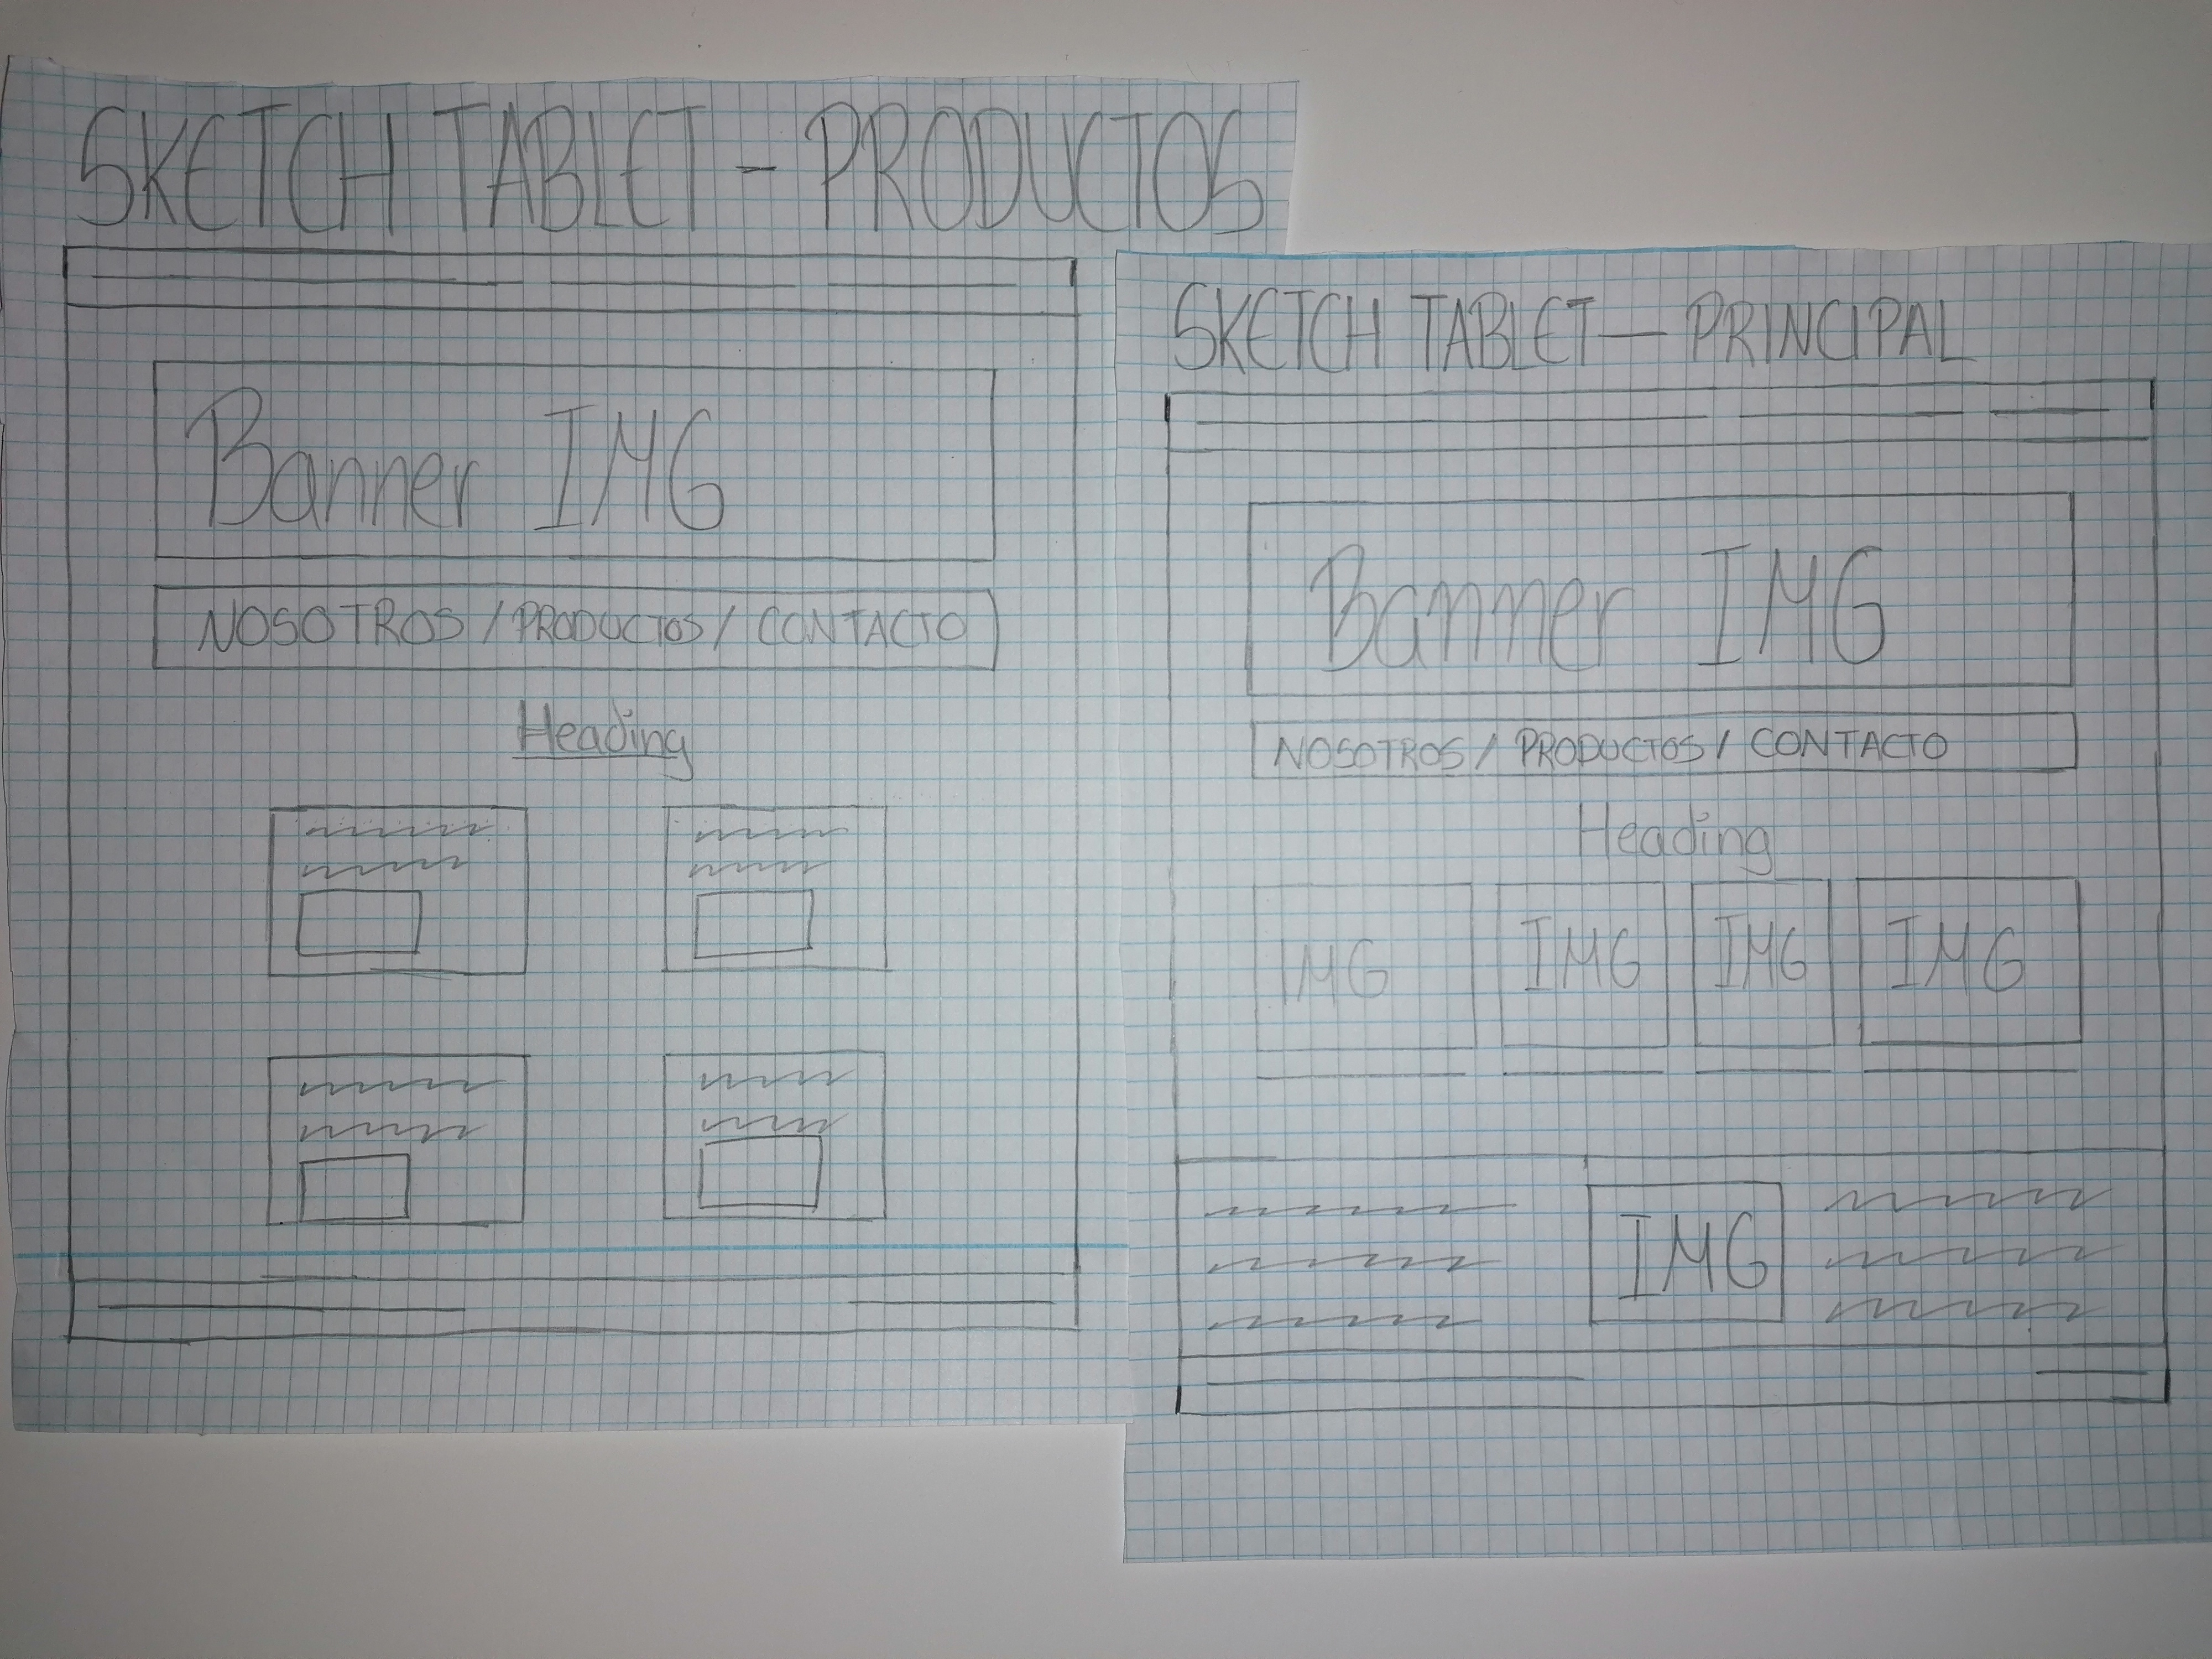 SKETCH TABLET - PRODUCTOS
Banner IMG
NOSOTROS / PRODUCTOS / CONTACTO
Heading
SKETCH TABLET — PRINCIPAL
Banner IMG
NOSOTROS / PRODUCTOS / CONTACTO
Heading
IMG IMG IMG IMG
IMG